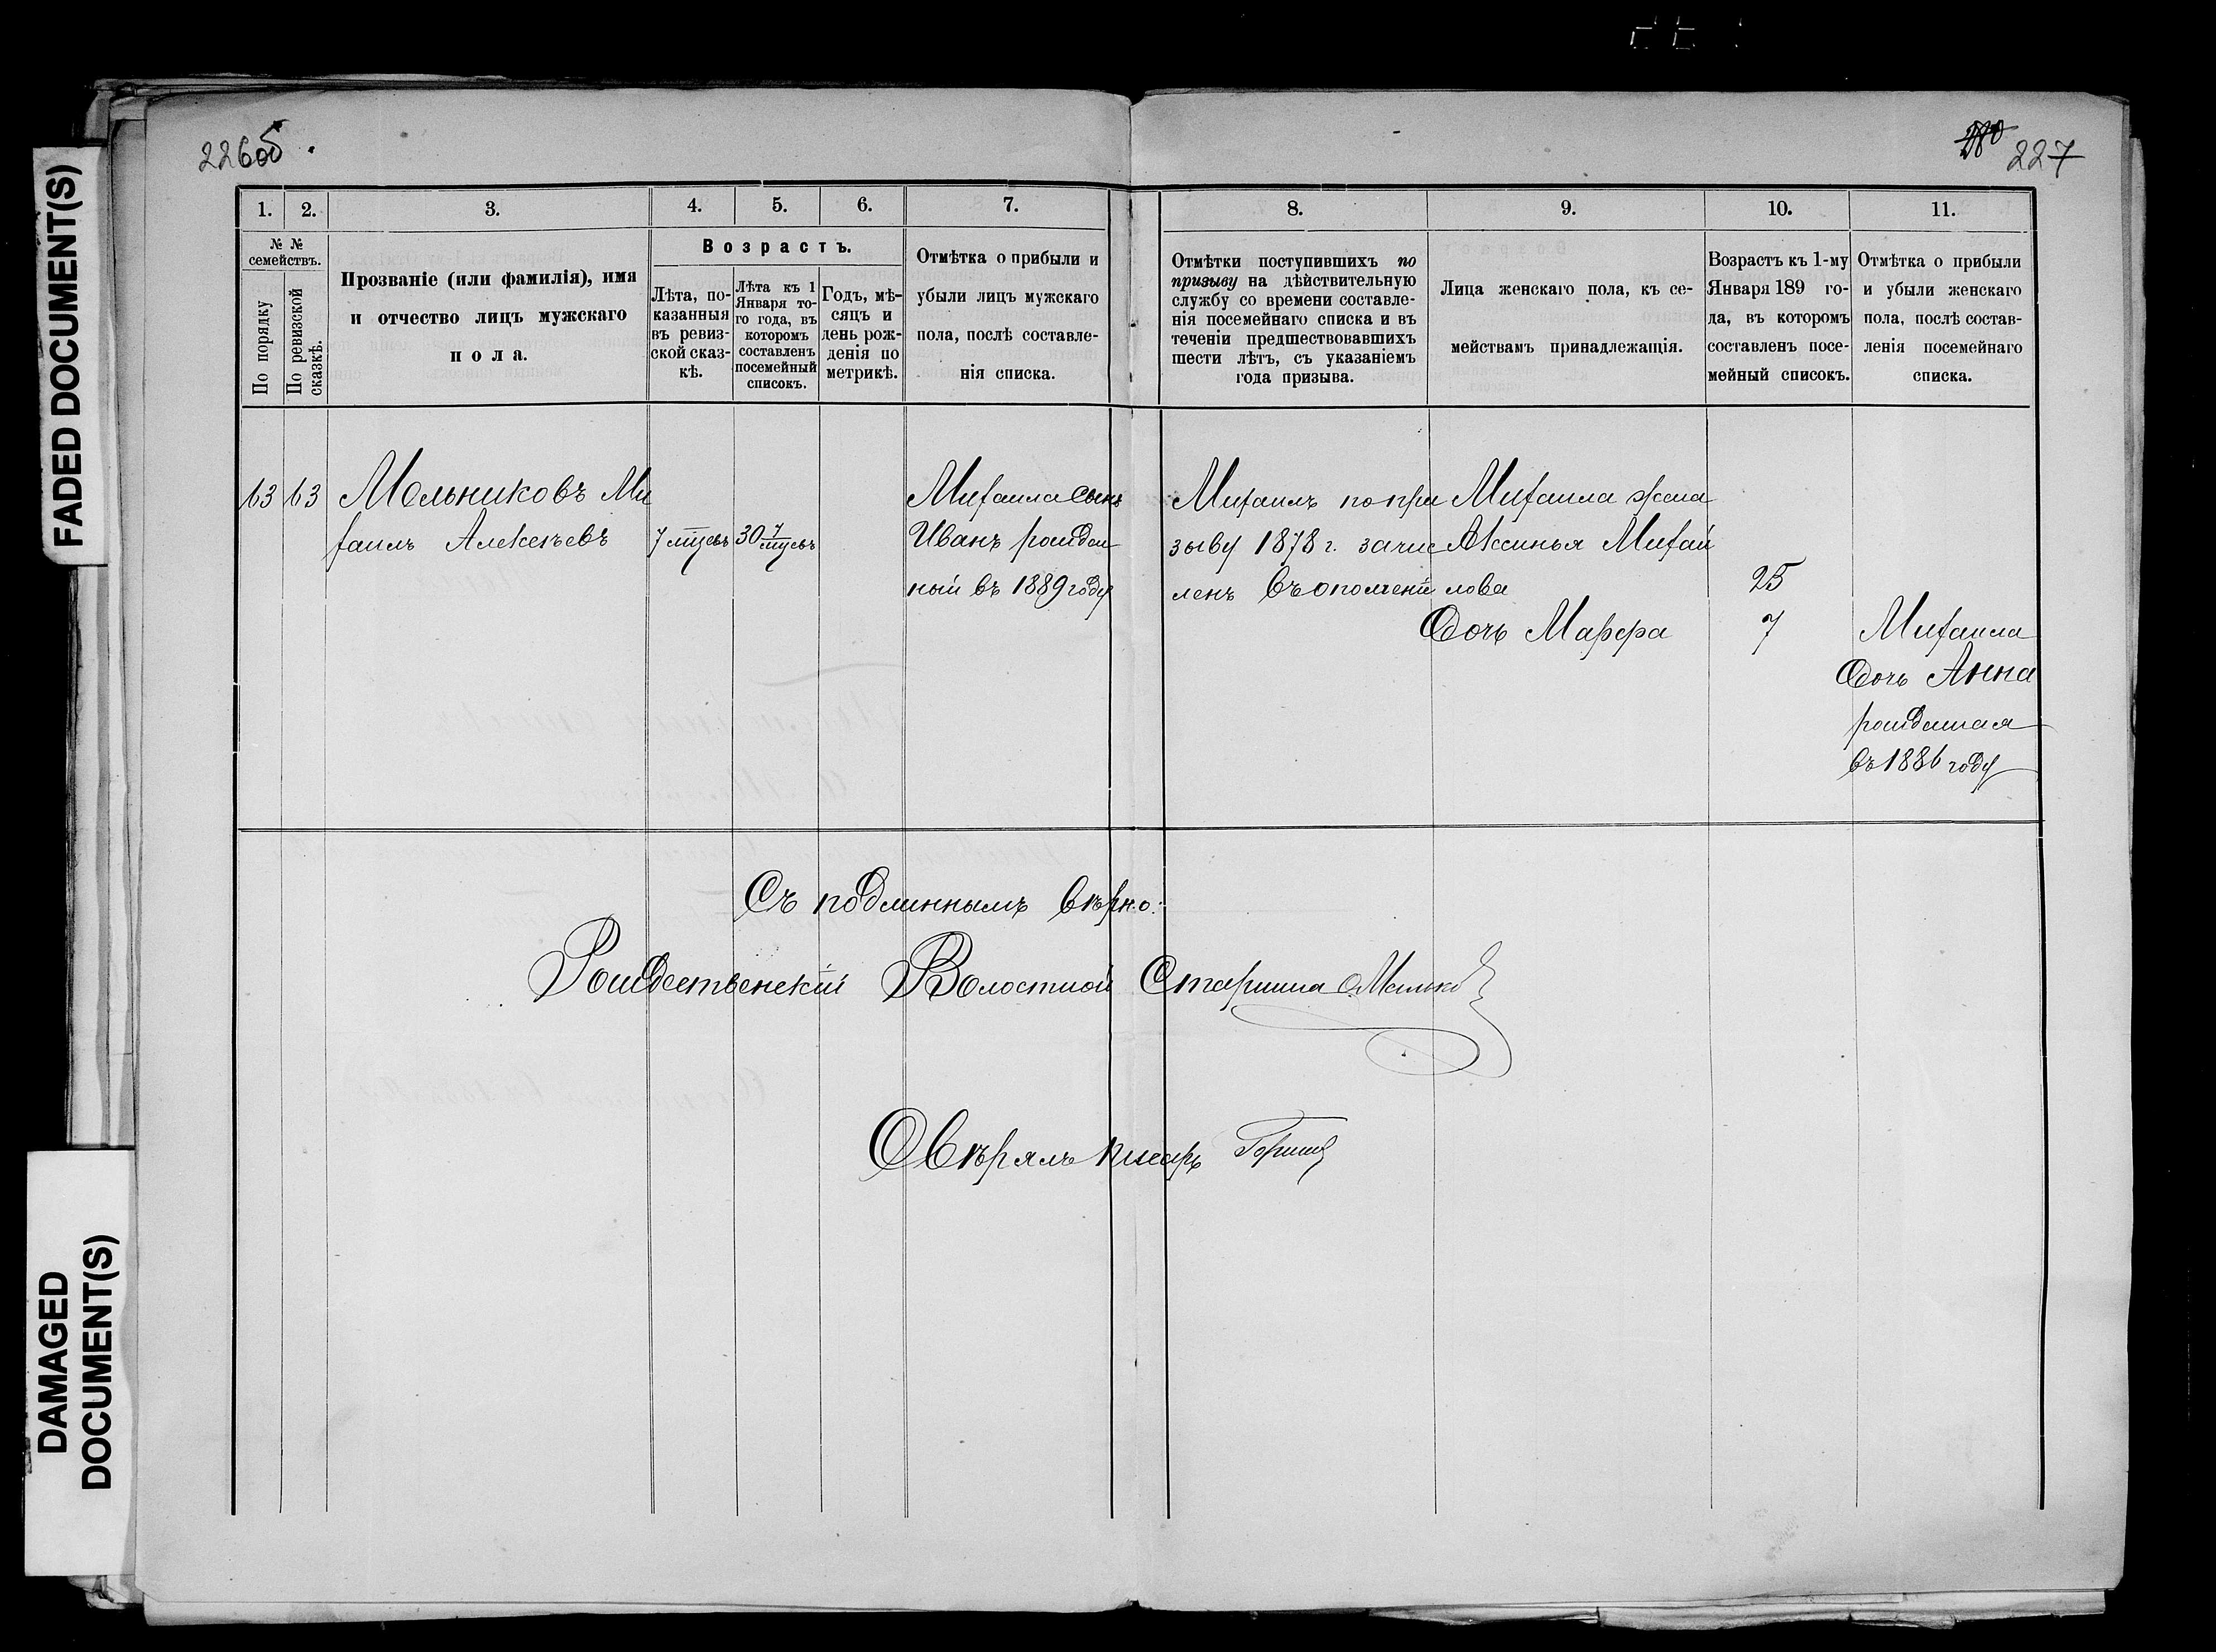 FADED DOCUMENT(S)
DAMAGED
DOCUMENT(S)
226об.
280
227
1.
2.
3.
4.
5.
6.
7.
8.
9.
10.
11.
№ №
семействъ.
По порядку
По ревизской
сказкѣ.
Прозваніе (или фамилія), имя
и отчество лицъ мужскаго
пола.
Возрастъ.
Лѣта, по-
казанныя
въ ревиз-
ской сказ-
кѣ.
Лѣта къ 1
Января то-
го года, въ
которомъ
составленъ
посемейный
списокъ.
Годъ, мѣ-
сяцъ и
день рож-
денія по
метрикѣ.
Отмѣтка о прибыли и
убыли лицъ мужскаго
пола, послѣ составле-
нія списка.
Отмѣтки поступившихъ по
призыву на дѣйствительную
службу со времени составле-
нія посемейнаго списка и въ
теченіи предшествовавшихъ
шести лѣтъ, съ указаніемъ
года призыва.
Лица женскаго пола, къ се-
мействамъ принадлежащія.
Возрастъ къ 1-му
Января 189 го-
да, въ которомъ
составленъ посе-
мейный списокъ.
Отмѣтка о прибыли
и убыли женскаго
пола, послѣ состав-
ленія посемейнаго
списка.
63
63
Мельниковъ Ми
хаилъ Алексѣевъ
7 мцевъ
30 7 мцевъ
Михаила сынъ
Иванъ рожден
ный въ 1889 году
Михаилъ по при
зыву 1878 г. зачис
ленъ въ ополчені
Михаила жена
Аксинья Михай
лова
25
Дочь Марфа
7
Михаила
Дочь Анна
рожденная
въ 1886 году
Съ подлиннымъ вѣрно:
Рождественскій Волостной Старшина
Свѣрялъ писарь